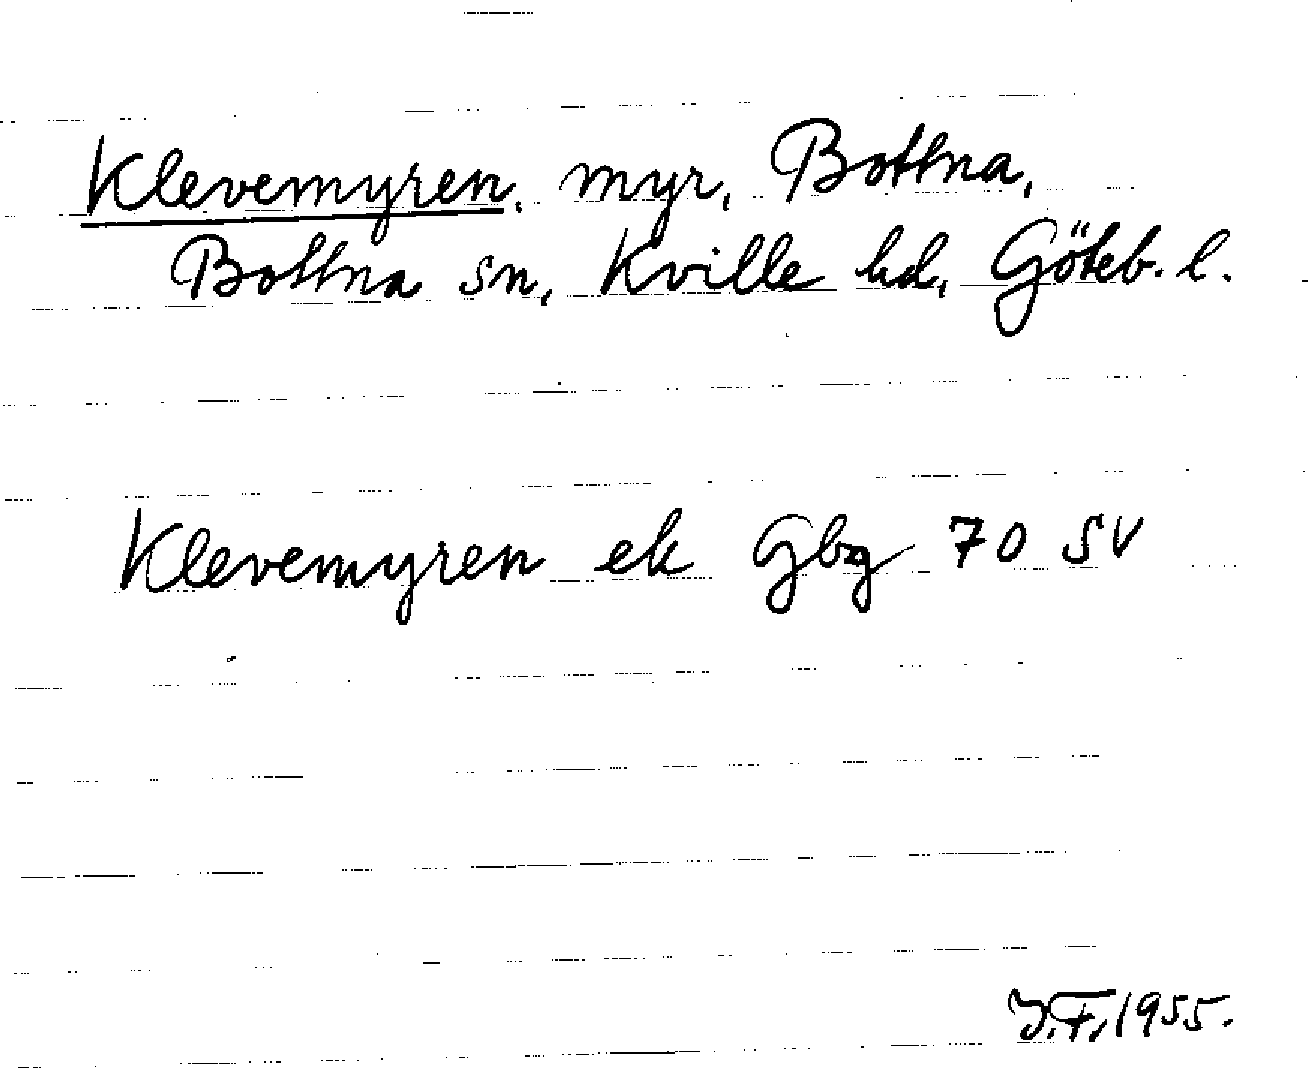 Klevemyren, myr, Bottna,
Bottna sn, Kville hd, Göteb. l.
Klevemyren ek Gbg 70 SV
J.F. 1955.